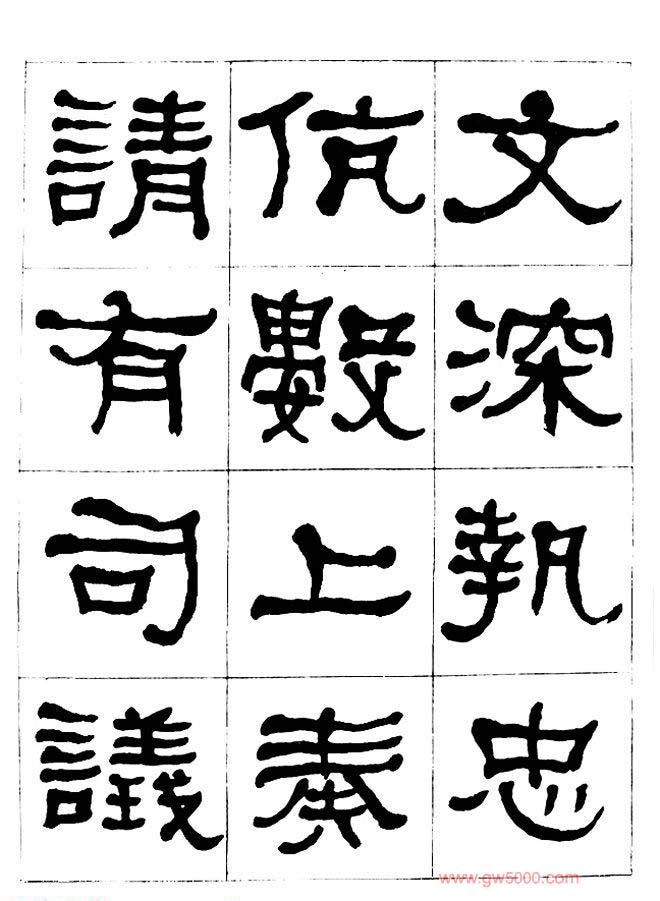 文深執忠
伉數上奏
請有司議
www.gw5000.com